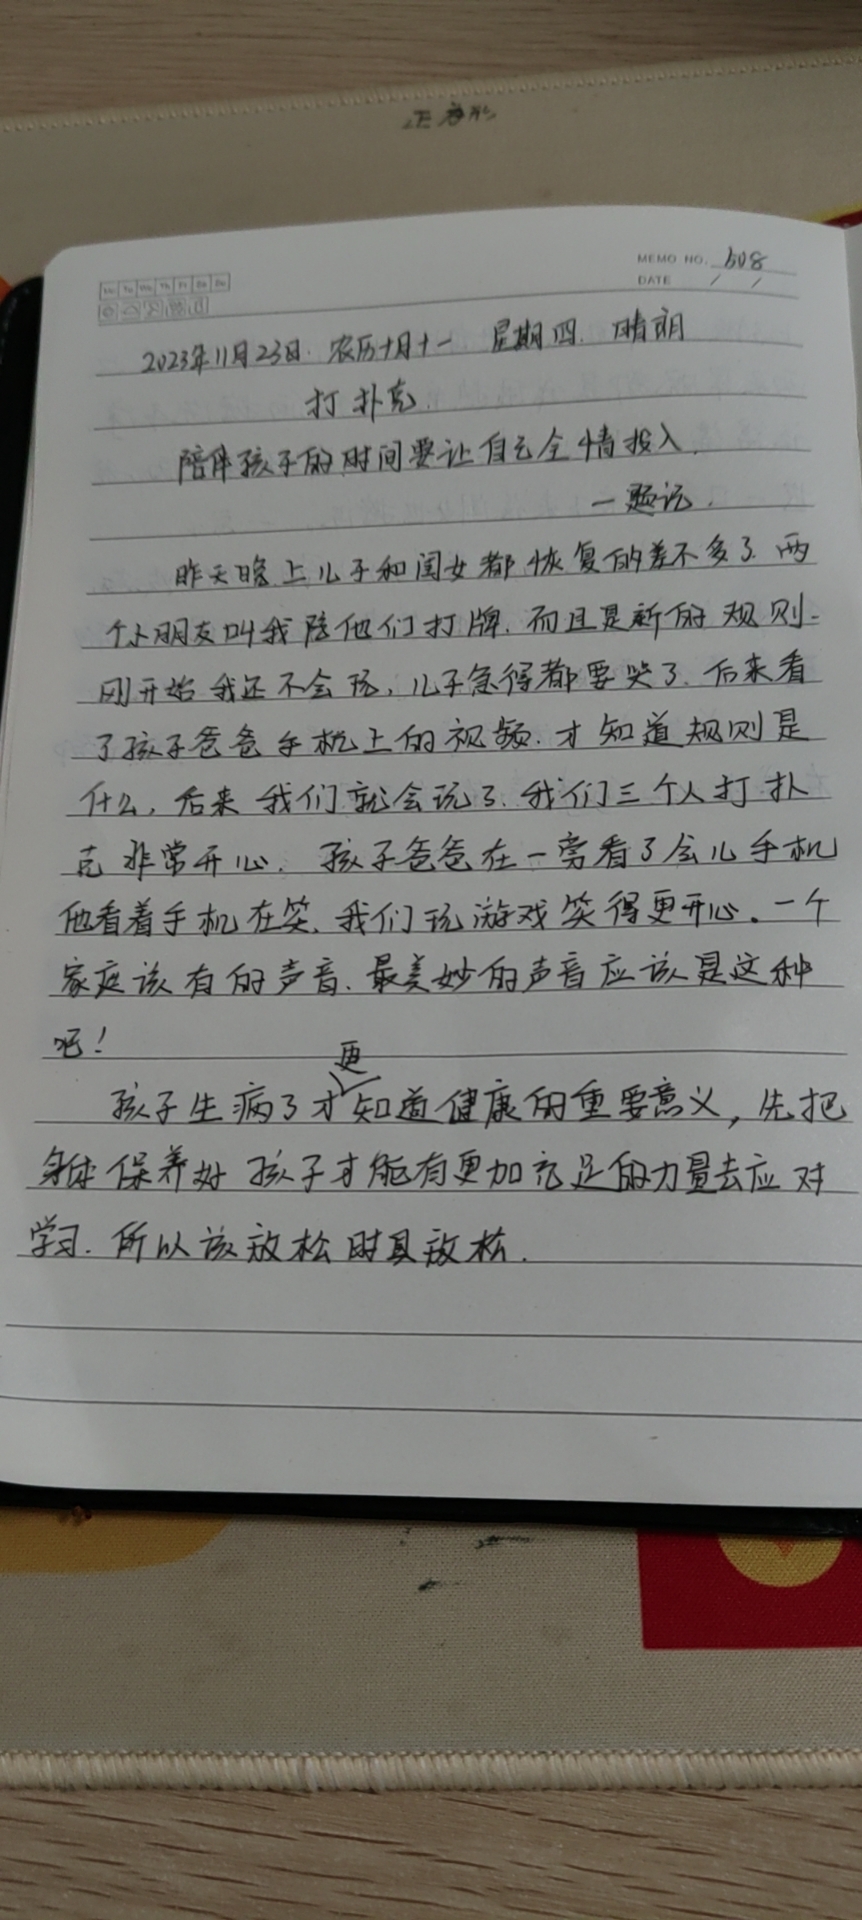 正方形
MEMO NO. 608
DATE / /
Mo Tu We Th Fr Sa Su
2023年11月23日. 农历十月十一 星期四. 晴朗
打扑克.
陪伴孩子的时间要让自己全情投入.
一题记.
昨天晚上儿子和闺女都恢复的差不多了. 两
个小朋友叫我陪他们打牌. 而且是新的规则.
刚开始我还不会玩, 儿子急得都要哭了. 后来看
了孩子爸爸手机上的视频. 才知道规则是
什么, 后来我们就会玩了. 我们三个人打扑
克非常开心. 孩子爸爸在一旁看了会儿手机
他看着手机在笑. 我们玩游戏笑得更开心. 一个
家庭该有的声音. 最美妙的声音应该是这种
吧!
孩子生病了才更知道健康的重要意义, 先把
身体保养好孩子才能有更加充足的力量去应对
学习. 所以该放松时且放松.